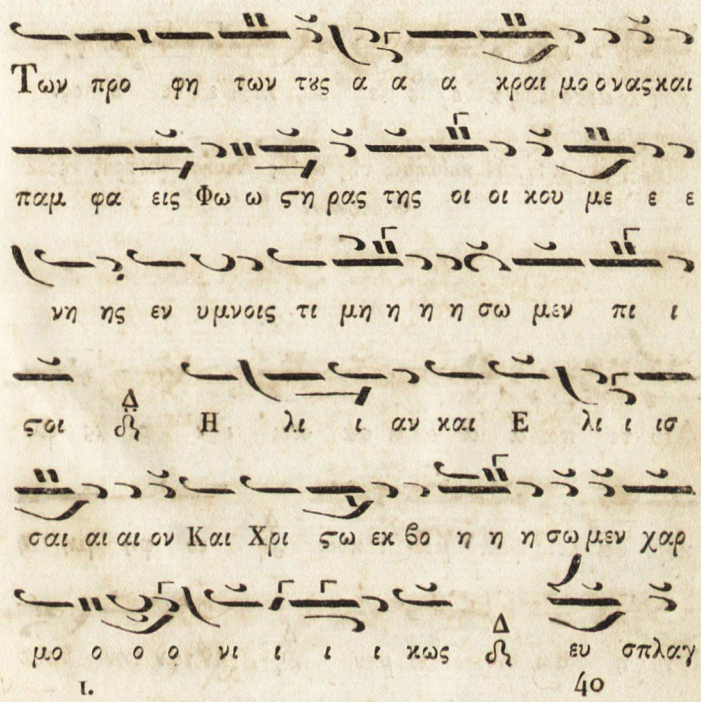 Των προ φη των τȣς α α α κραι μο ο νας και
παμ φα εις Φω ω ϛη ρας της οι οι κου με ε ε
νη ης εν υμνοις τι μη η η η σω μεν πι ι
ϛοι Δ Η λι ι αν και Ε λι ι ισ
σαι αι αι ον Και Χρι ϛω εκ βο η η η σω μεν χαρ
μο ο ο ο νι ι ι ι κως Δ ευ σπλαγ
1. 40